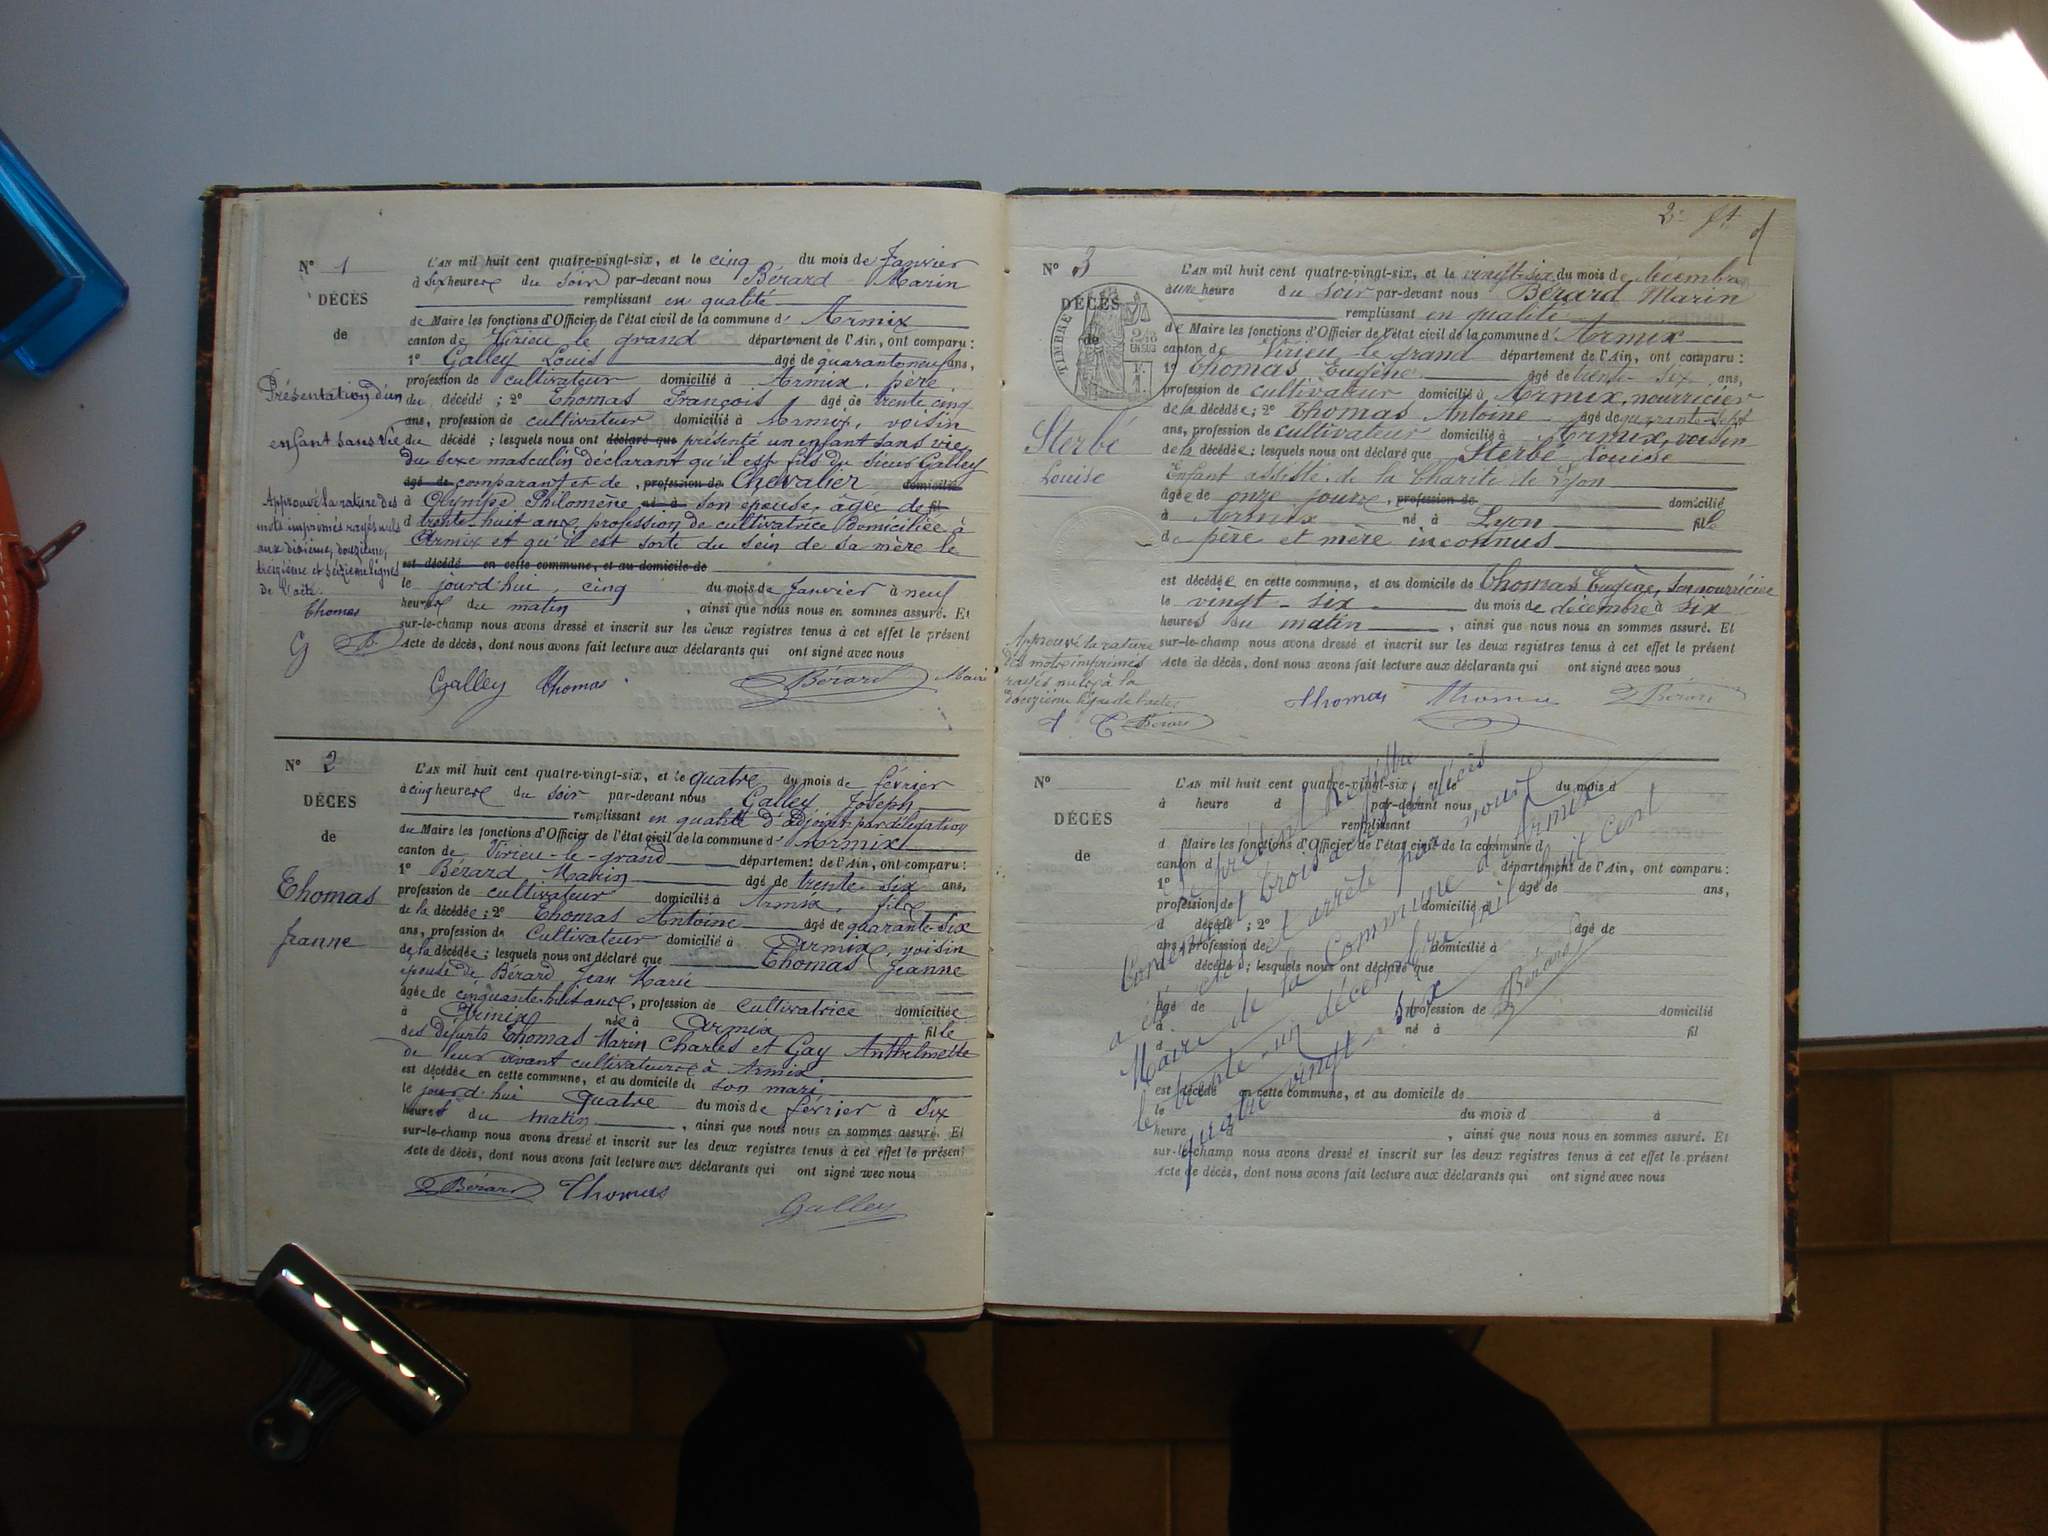 N° 1
DÉCÈS
de
Présentation d'un
enfant sans vie
Approuvé la rature des
mots imprimés rayés nuls
aux dixième, douzième,
treizième et seizième lignes
de l'acte.
Thomas
G B
L'AN mil huit cent quatre-vingt-six, et le cinq du mois de Janvier
à six heures du soir par-devant nous Bérard Marin
remplissant en qualité
de Maire les fonctions d'Officier de l'état civil de la commune d' Armix
canton de Virieu le grand département de l'Ain, ont comparu :
1° Galley Louis âgé de quarante neuf ans,
profession de cultivateur domicilié à Armix, père
du décédé ; 2° Thomas François âgé de trente cinq
ans, profession de cultivateur domicilié à Armix, voisin
du décédé ; lesquels nous ont déclaré que présenté un enfant sans vie
du sexe masculin déclarant qu'il est fils du sieur Galley
âgé de comparant et de , profession de Chevalier domicilié
à Olympe Philomène né à son épouse, âgée de fil
d trente-huit ans, profession de cultivatrice domiciliée à
Armix et qu'il est sorti du sein de sa mère le
est décédé en cette commune, et au domicile de
le jourd'hui, cinq du mois de Janvier à neuf
heures du matin , ainsi que nous nous en sommes assuré. Et
sur-le-champ nous avons dressé et inscrit sur les deux registres tenus à cet effet le présent
Acte de décès, dont nous avons fait lecture aux déclarants qui ont signé avec nous
Galley Thomas Bérard Maire
N° 2
DÉCÈS
de
Thomas
Jeanne
L'AN mil huit cent quatre-vingt-six, et le quatre du mois de février
à cinq heures du soir par-devant nous Galley Joseph
remplissant en qualité d'adjoint par délégation
du Maire les fonctions d'Officier de l'état civil de la commune d' Armix
canton de Virieu-le-grand département de l'Ain, ont comparu :
1° Bérard Marin âgé de trente six ans,
profession de cultivateur domicilié à Armix, fils
de la décédée ; 2° Thomas Antoine âgé de quarante-six
ans, profession de Cultivateur domicilié à Armix, voisin
de la décédée ; lesquels nous ont déclaré que Thomas Jeanne
épouse de Bérard Jean Marie
âgée de cinquante-huit ans, profession de cultivatrice domiciliée
à Armix née à Armix fille
des défunts Thomas Marin Charles et Gay Anthelmette
de leur vivant cultivateurs à Armix
est décédée en cette commune, et au domicile de son mari
le jourd'hui quatre du mois de février à six
heures du matin , ainsi que nous nous en sommes assuré. Et
sur-le-champ nous avons dressé et inscrit sur les deux registres tenus à cet effet le présent
Acte de décès, dont nous avons fait lecture aux déclarants qui ont signé avec nous
Bérard Thomas
Galley
N° 3
DÉCÈS
de
TIMBRE
Sterbé
Louise
Approuvé la rature
des mots imprimés
rayés nuls à la
douzième ligne de l'acte
T. T. Bérard
L'AN mil huit cent quatre-vingt-six, et le vingt-six du mois de décembre
à une heure du soir par-devant nous Bérard Marin
remplissant en qualité
de Maire les fonctions d'Officier de l'état civil de la commune d' Armix
canton de Virieu-le-grand département de l'Ain, ont comparu :
1° Thomas Eugène âgé de trente-six ans,
profession de cultivateur domicilié à Armix, nourricier
de la décédée ; 2° Thomas Antoine âgé de quarante-sept
ans, profession de cultivateur domicilié à Armix, voisin
de la décédée ; lesquels nous ont déclaré que Sterbé Louise
Enfant assisté de la Charité de Lyon
âgée de onze jours, profession de domicilié
à Armix né à Lyon fille
de père et mère inconnus
est décédée en cette commune, et au domicile de Thomas Eugène, son nourricier
le vingt-six du mois de décembre à six
heures du matin , ainsi que nous nous en sommes assuré. Et
sur-le-champ nous avons dressé et inscrit sur les deux registres tenus à cet effet le présent
Acte de décès, dont nous avons fait lecture aux déclarants qui ont signé avec nous
Thomas Thomas Bérard
N°
DÉCÈS
de
L'AN mil huit cent quatre-vingt-six, et le du mois d
à heure d par-devant nous
remplissant
d Maire les fonctions d'Officier de l'état civil de la commune d
canton d département de l'Ain, ont comparu :
1° âgé de ans,
profession de domicilié à
d décédé ; 2° âgé de
ans, profession de domicilié à
d décédé ; lesquels nous ont déclaré que
âgé de profession de domicilié
à né à fil
d
est décédé en cette commune, et au domicile de
le du mois d à
heure d , ainsi que nous nous en sommes assuré. Et
sur-le-champ nous avons dressé et inscrit sur les deux registres tenus à cet effet le présent
Acte de décès, dont nous avons fait lecture aux déclarants qui ont signé avec nous
Le présent Registre
Contenant trois actes de décès
a été clos et arrêté par nous
Maire de la Commune d'Armix
le trente-un décembre mil huit cent
quatre-vingt-six
Bérard